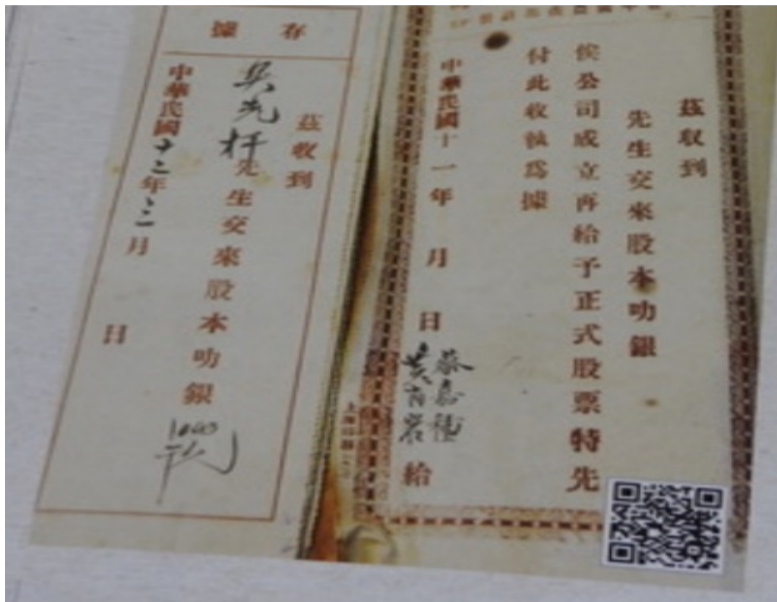 茲收到
先生交來股本叻銀
俟公司成立再給予正式股票特先
付此收執爲據
中華民國十一年 月 日
給
存據
茲收到
吳先杆先生交來股本叻銀
中華民國十二年 三月 日